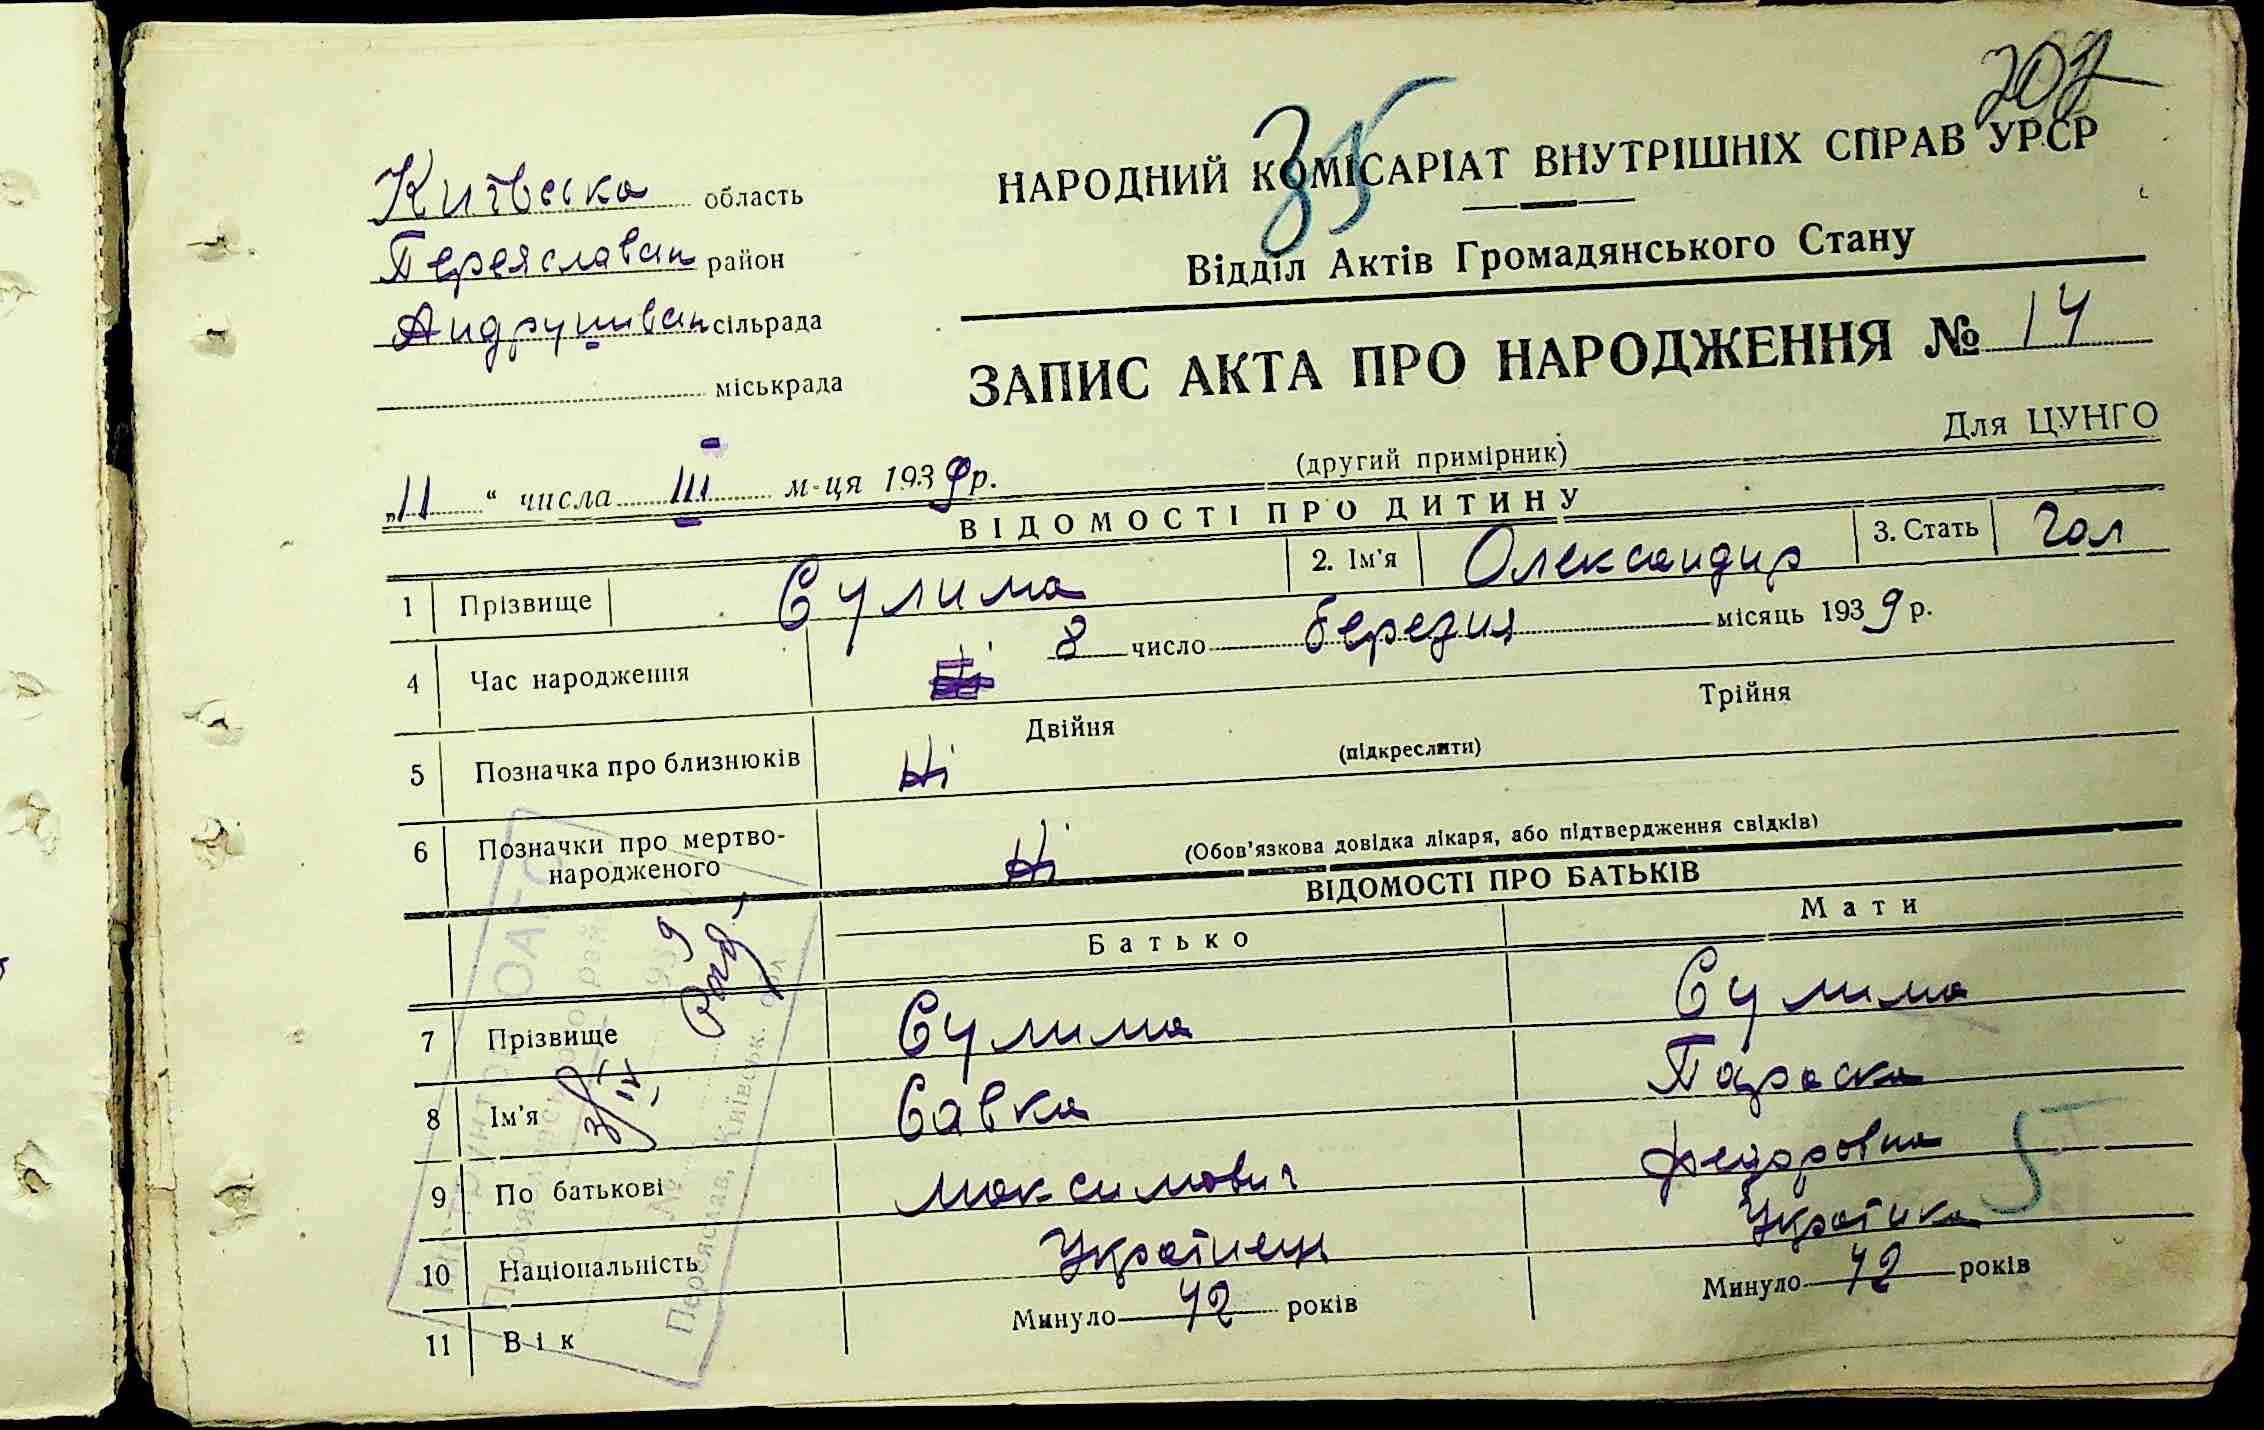 202
35
Київська область
Переяславськ район
Андрушівськ сільрада
міськрада
НАРОДНИЙ КОМІСАРІАТ ВНУТРІШНІХ СПРАВ УРСР
Відділ Актів Громадянського Стану
ЗАПИС АКТА ПРО НАРОДЖЕННЯ № 14
„11“ числа III м-ця 1939 р.
(другий примірник)
Для ЦУНГО
ВІДОМОСТІ ПРО ДИТИНУ
1 Прізвище Сулима 2. Ім'я Олександир 3. Стать Чол
4 Час народження 8 число березня місяць 1939 р.
5 Позначка про близнюків Ні Двійня (підкреслити) Трійня
6 Позначки про мертво-
народженого Ні (Обов'язкова довідка лікаря, або підтвердження свідків)
ВІДОМОСТІ ПРО БАТЬКІВ
Батько Мати
7 Прізвище Сулима Сулима
8 Ім'я Савка Параска
9 По батькові Максимович Федоровна
10 Національність Українець Українка
11 Вік Минуло 42 років Минуло 42 років
5
Переяслав, Київськ. обл.